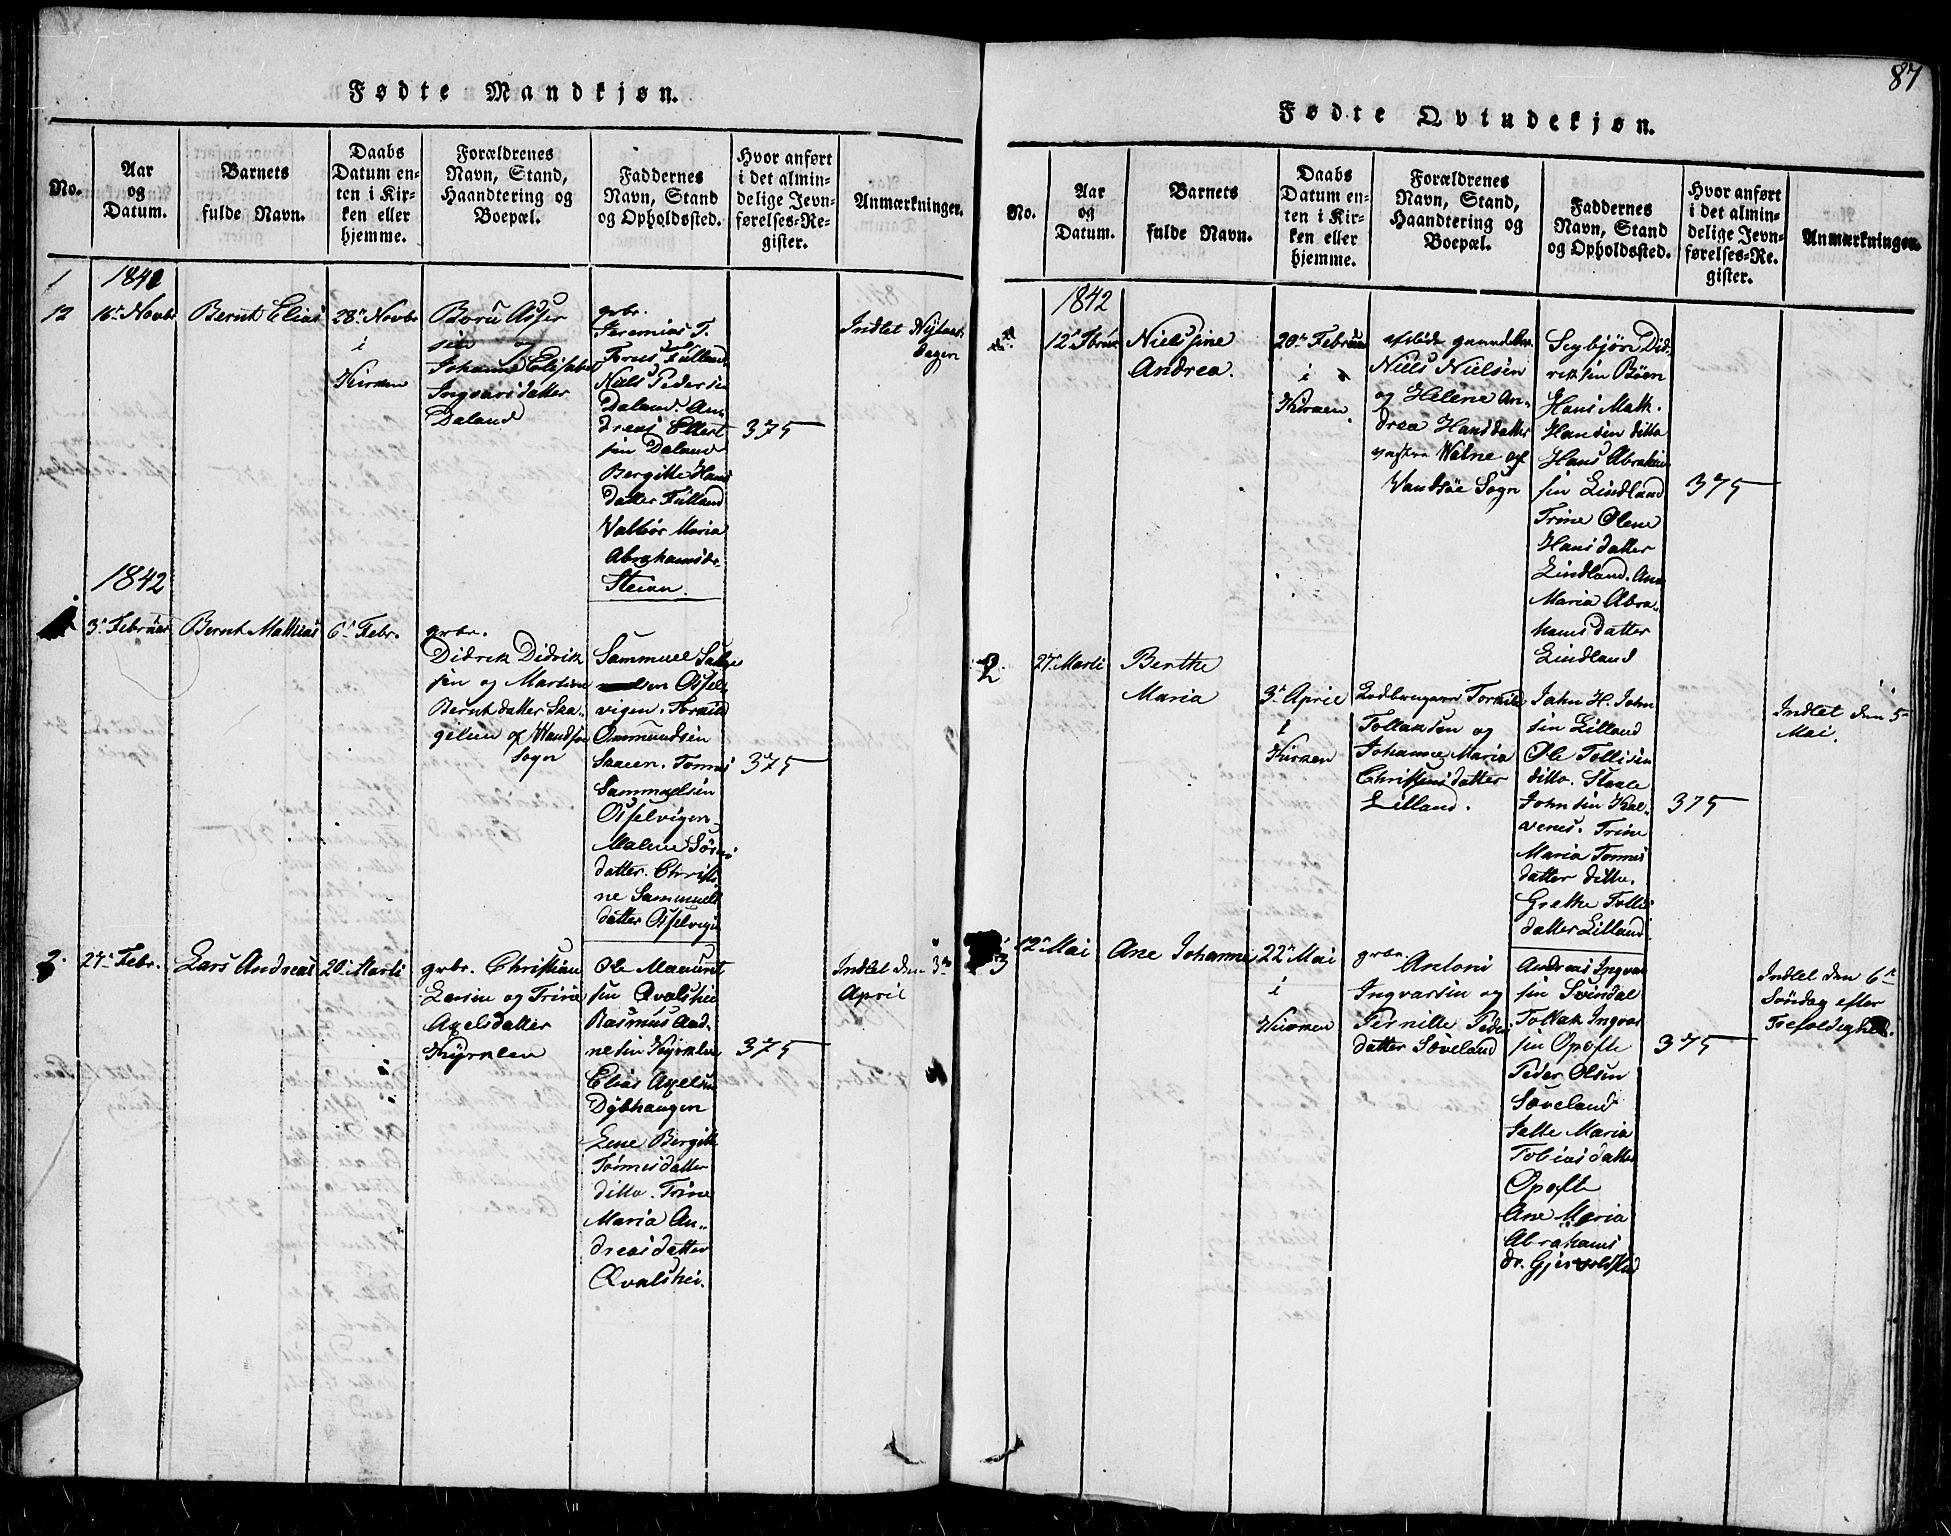 87
Fødte Mandkjøn.
No.
Aar
og
Datum.
Barnets
fulde Navn.
Daabs
Datum en-
ten i Kir-
ken eller
hjemme.
Forældrenes
Navn, Stand,
Haandtering og
Boepæl.
Faddernes
Navn, Stand
og Opholdssted.
Hvor anført
i det almin-
delige Jevn-
førelses-Re-
gister.
Anmærkninger.
1841
12
16de Novbr
Bernt Elias
28de Novbr
i
Kirken
og
Johanne Elisabet
Ingvarsdatter
Daland
gbr.
Jeremias T.
Niels Pedersen
Daland. An-
dreas Ellert
sen Daland
Bergitte Hans
datter
Valbør Maria
Abrahamsdr
Steian.
375
Indlet Nytaars
dagen
1842
3de Februar
Bernt Mathias
6te Febr.
gbr.
Didrik Didrik
sen og Martine
Bernt datter Ska-
gelien af Vandsøe
Sogn
Sammuel
vigen.
Ommundsen
Skaeen. Tonnes
Sammuelsen
Ospelvigen
Malene Sørens
datter. Christi
ne Sammuels
datter Ospelvigen
375
2.
27de Febr.
Lars Andreas
20de Marti
gbr. Christian
Larsen og Trine
Axelsdatter
Kyrklen
Ole Monunt
sen Qvalshei
Rasmus Aad-
nesen Kyrklen
Elias Axelsen
Dybhaugen
Lene Bergitte
Tonnesdatter
ditto. Trine
Maria An-
dreasdatter
Qvalshei.
375
Indlet den 3de
April
Fødte Qvindekjøn.
No.
Aar
og
Datum.
Barnets
fulde Navn.
Daabs
Datum en-
ten i Kir-
ken eller
hjemme.
Forældrenes
Navn, Stand,
Haandtering og
Boepæl.
Faddernes
Navn, Stand
og Opholdssted.
Hvor anført
i det almin-
delige Jevn-
førelses-Re-
gister.
Anmærkninger.
1842
12te Fbruar
Nielssine
Andrea.
20de Februar
i
Kirken.
afdøde
Niels Nielsen
og Helene An-
drea Hansdatter
Walne af
Vandsøe Sogn
Seybjørn Did-
riksen Bøen
Hans Math.
Hansen ditto
Hans Abraham
sen Lindland
Trine Olene
Hansdatter
Lindland. Ane
Maria Abra-
hamsdatter
Lindland
375
2
27de Marti
Berthe
Maria
3de April
i
Kirken
Torkild
Tollaksen og
Johanne Maria
Christensdatter
Lilland.
John H. John
sen Lilland
Ole Tollisen
ditto. Staale
Johnsen Kal-
venes. Trine
Maria Tonnes
datter ditto.
Grethe Tollis
datter Lilland.
375
Indlet den 5te
Mai.
3
12te Mai
Ane Johanne
22de Mai
i
Kirken
gbr.
Antoni
Ingvarsen og
Pernille Peders
datter Soveland
Andreas Ingvar
sen Svindal
Tollak Ingvar
sen Opofte
Peder Olsen
Soveland
Jatte Maria
Tobiasdatter
Opofte
Ane Maria
Abrahams
dr. Gjervoldstad
375
Indlet den 6te
Søndag efter
Trefoldighed.